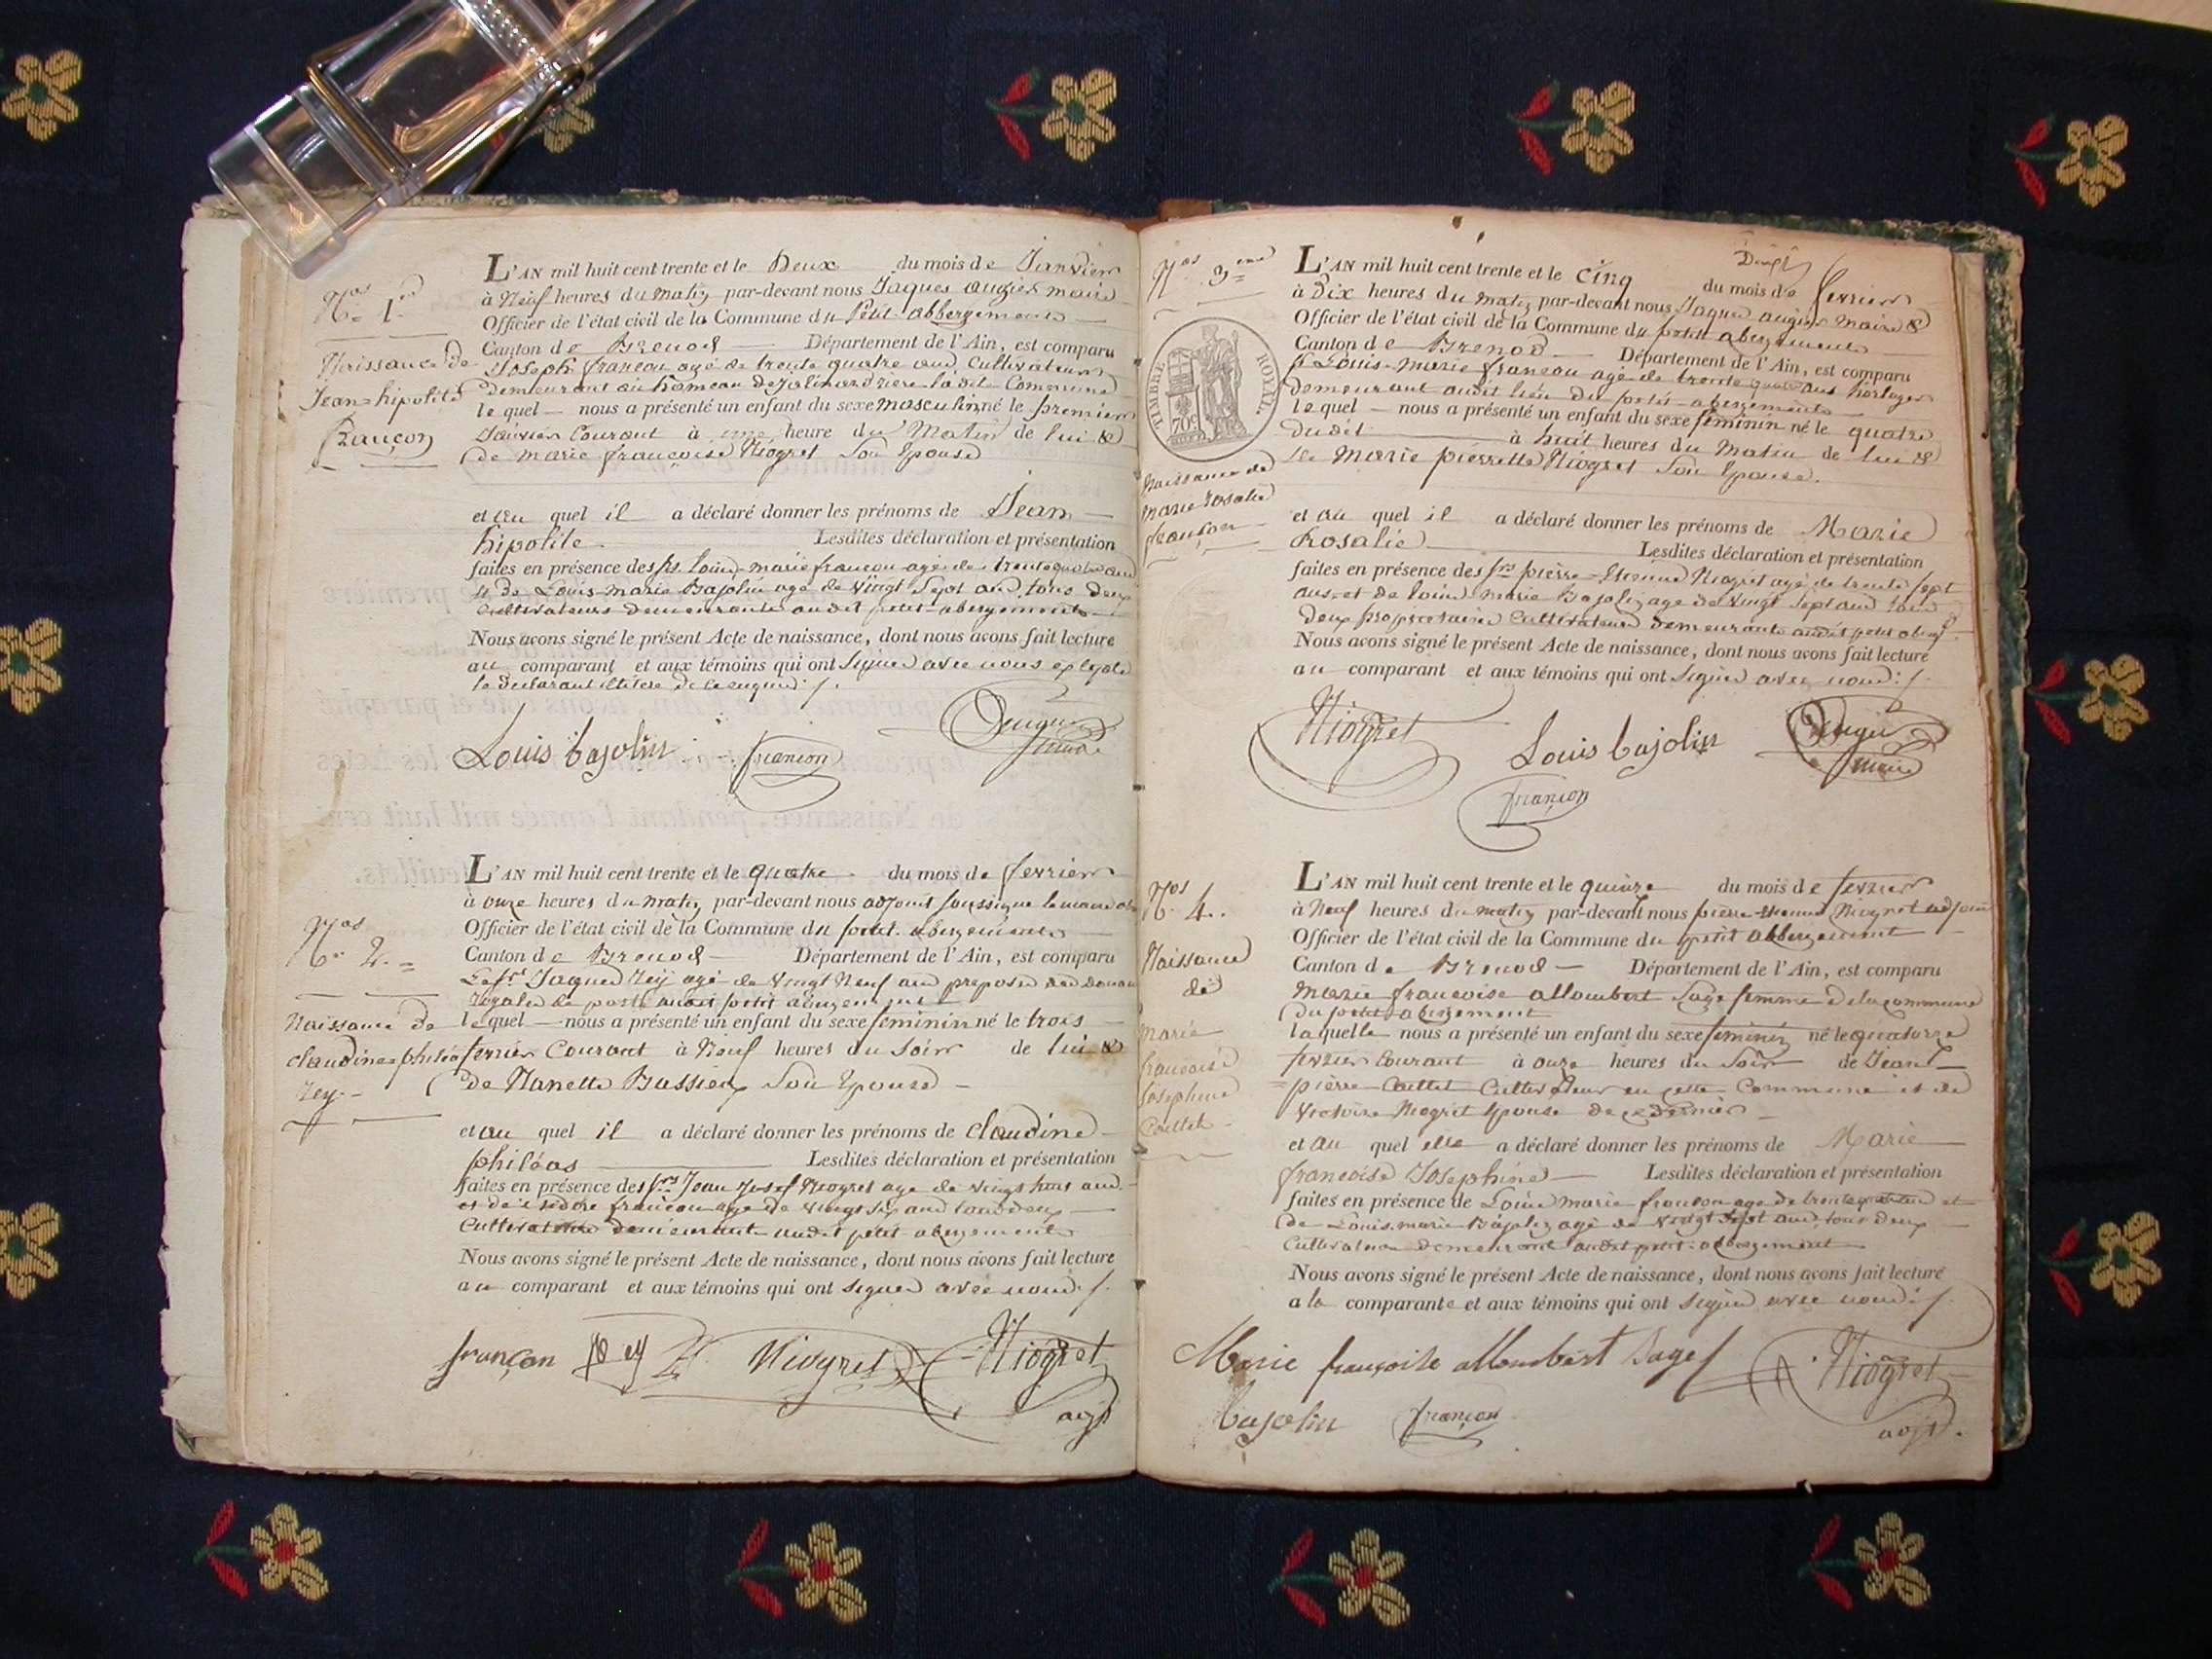 Nos 1er
Naissance de
Jean=hipolite
françon
L'AN mil huit cent trente et le Deux du mois de Janvier
à Neuf heures du matin par-devant nous Jaques augier maire
Officier de l'état civil de la Commune du Petit abbergement
Canton de Brenod Département de l'Ain, est comparu
Joseph francon agé de trente quatre ans Cultivateur
Demeurant au hameau de Jalinard rière la dite Commune
lequel nous a présenté un enfant du sexe masculin né le premier
Janvier Courant à une heure du Matin de lui &
de marie françoise Niogret Son Epouse
et au quel il a déclaré donner les prénoms de Jean
hipolite Lesdites déclaration et présentation
faites en présence des srs louis-marie francon agé de trente quatre ans
et de Louis-marie Bajolin agé de vingt Sept ans tous deux
Cultivateurs demeurants audit petit-abergement
Nous avons signé le présent Acte de naissance, dont nous avons fait lecture
au comparant et aux témoins qui ont Signés avec nous
le declarant illitéré de ce enquis ./.
Louis bajolin françon augier maire
Nos 2.
Naissance de
claudine=philéas
rey
L'AN mil huit cent trente et le quatre du mois de fevrier
à onze heures du matin par-devant nous adjoint soussigné le maire
Officier de l'état civil de la Commune du petit abergement
Canton de Brenod Département de l'Ain, est comparu
Le sr Jaques Rey agé de vingt Neuf ans preposé des douanes
Royales de poste audit petit abergement
lequel nous a présenté un enfant du sexe feminin né le trois
fevrier Courant à Neuf heures du Soir de lui &
de Nanette Bussieux Son Epouse
et au quel il a déclaré donner les prénoms de claudine
philéas Lesdites déclaration et présentation
faites en présence des srs Jean Josef Niogret agé de vingt trois ans
et de isidore françon agé de vingt six ans tous deux
Cultivateurs demeurants audit petit abergement
Nous avons signé le présent Acte de naissance, dont nous avons fait lecture
au comparant et aux témoins qui ont signés avec nous ./.
françon Rey Niogret Niogret
adjt
Deux
Nos 3eme
TIMBRE ROYAL.
70c
Naissance de
marie rosalie
françon
L'AN mil huit cent trente et le cinq du mois de fevrier
à Dix heures du matin par-devant nous Jaques augier maire &
Officier de l'état civil de la Commune du petit abergement
Canton de Brenod Département de l'Ain, est comparu
sr Louis-marie francon agé de trente quatre ans horloger
demeurant audit lieu du petit-abergement
lequel nous a présenté un enfant du sexe feminin né le quatre
dudit à huit heures du Matin de lui &
de Marie pierrette Niogret Son Epouse.
et au quel il a déclaré donner les prénoms de Marie
Rosalie Lesdites déclaration et présentation
faites en présence des srs pierre-Etienne Niogret agé de trente sept
ans et de louis marie Bajolin age de vingt sept ans tous
deux propriétaires Cultivateurs demeurants audit petit aberget
Nous avons signé le présent Acte de naissance, dont nous avons fait lecture
au comparant et aux témoins qui ont Signés avec nous ./.
Niogret Louis bajolin augier maire
françon
Nos 4.
Naissance
de
marie
francoise
Josephine
Couttet
L'AN mil huit cent trente et le quinze du mois de fevrier
à Neuf heures du matin par-devant nous pierre-Etienne Niogret adjoint
Officier de l'état civil de la Commune du petit abbergement
Canton de Brenod Département de l'Ain, est comparu
Marie francoise allombert Sage femme de la commune
du petit abergement
laquelle nous a présenté un enfant du sexe feminin né le quatorze
fevrier Courant à onze heures du Soir de Jean
pierre Couttet Cultivateur en cette Commune et de
Victoire Niogret Epouse de ce dernier
et au quel elle a déclaré donner les prénoms de Marie
francoise Josephine Lesdites déclaration et présentation
faites en présence de Louis marie francon age de trente quatre ans et
de Louis marie Bajolin agé de vingt Sept ans, tous deux
Cultivateurs demeurant audit petit-abbergement
Nous avons signé le présent Acte de naissance, dont nous avons fait lecture
a la comparante et aux témoins qui ont signés avec nous ./.
Marie françoise allombert Sage f Niogret
bajolin françon adjt.